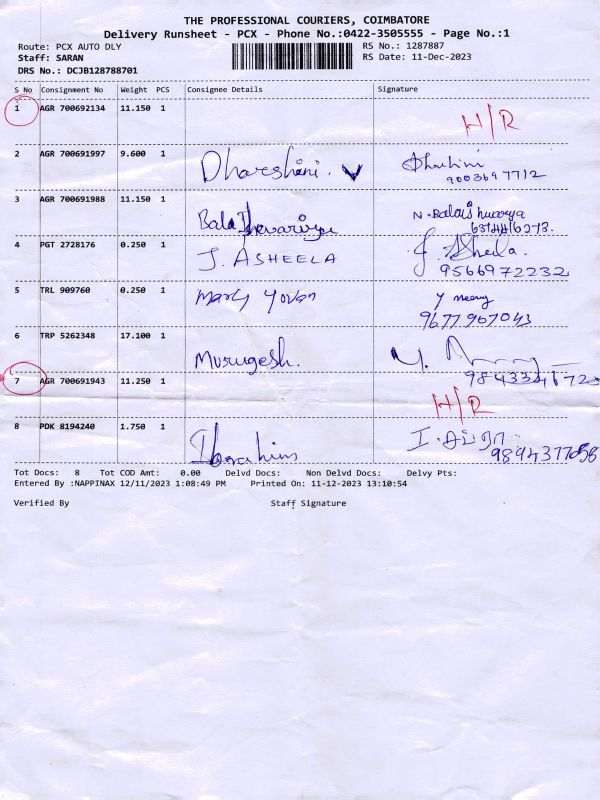 THE PROFESSIONAL COURIERS, COIMBATORE
Delivery Runsheet - PCX - Phone No.:0422-3505555 - Page No.:1
Route: PCX AUTO DLY RS No.: 1287887
Staff: SARAN RS Date: 11-Dec-2023
DRS No.: DCJB128788701
S No Consignment No Weight PCS Consignee Details Signature
1 AGR 700692134 11.150 1 H/R
2 AGR 700691997 9.600 1 Dharshini.
9003697712
3 AGR 700691988 11.150 1 N.
4 PGT 2728176 0.250 1 J. ASHEELA J. Asheela.
9566972232
5 TRL 909760 0.250 1 Mary
9677967043
6 TRP 5262348 17.100 1 Murugesh.
7 AGR 700691943 11.250 1 H/R
8 PDK 8194240 1.750 1 Ibrahim I.
Tot Docs: 8 Tot COD Amt: 0.00 Delvd Docs: Non Delvd Docs: Delvy Pts:
Entered By :NAPPINAX 12/11/2023 1:08:49 PM Printed On: 11-12-2023 13:10:54
Verified By Staff Signature